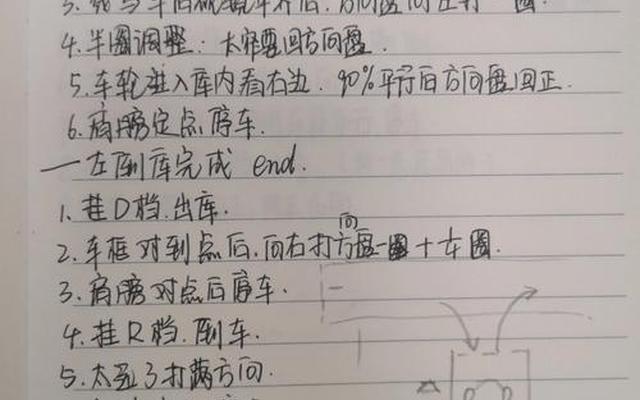 4.半圈调整:大邪要回方向盘.
5.车轮进入库内看右边.90%平行后方向盘回正.
6.肩膀定点停车.
一左倒库完成 end.
1.挂D档.出库.
2.车框对到点后.向右打方向盘一圈+半圈.
3.肩膀对点后停车.
4.挂R档.倒车.
5.太歪了打两方向.